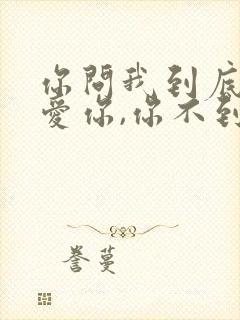 你問我到底
愛你,你不到
誉蔓